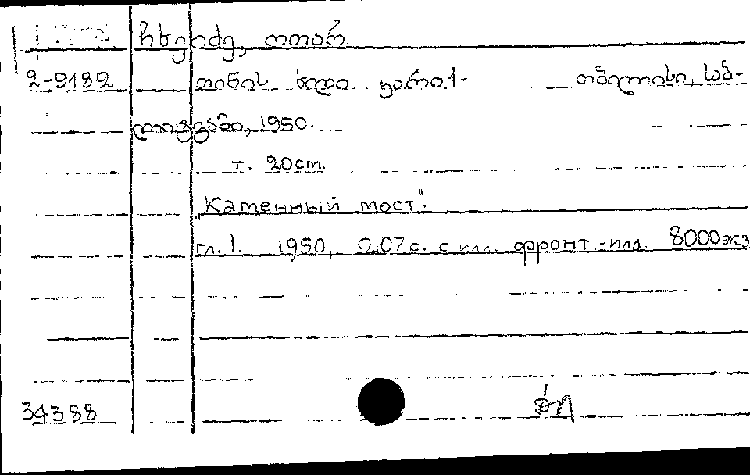 ჩხეიძე, ოთარ
2-9182 თინის ხიდი კარი.1- თბილისი, საბ-
ლიტგამი, 1950.
т. 20 cm.
"Каменный мост".
гл. 1. 1950, с. с илл. фронт.-илл. 8000 экз
34388